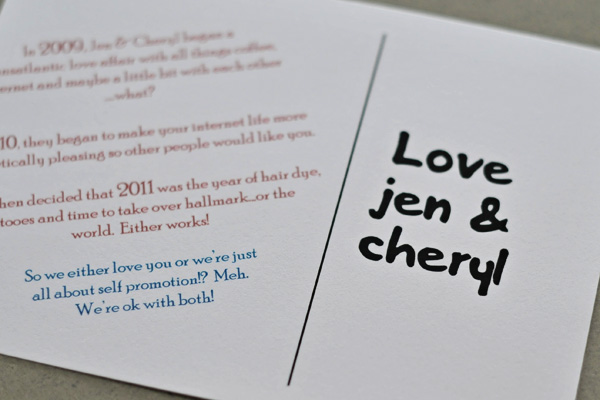 In 2009, Jen & Cheryl began a
nsatlantic love affair with all things coffee,
ernet and maybe a little bit with each other
...what?
10, they began to make your internet life more
tically pleasing so other people would like you.
hen decided that 2011 was the year of hair dye,
tooes and time to take over hallmark...or the
world. Either works!
So we either love you or we're just
all about self promotion!? Meh.
We're ok with both!
Love
jen &
cheryl